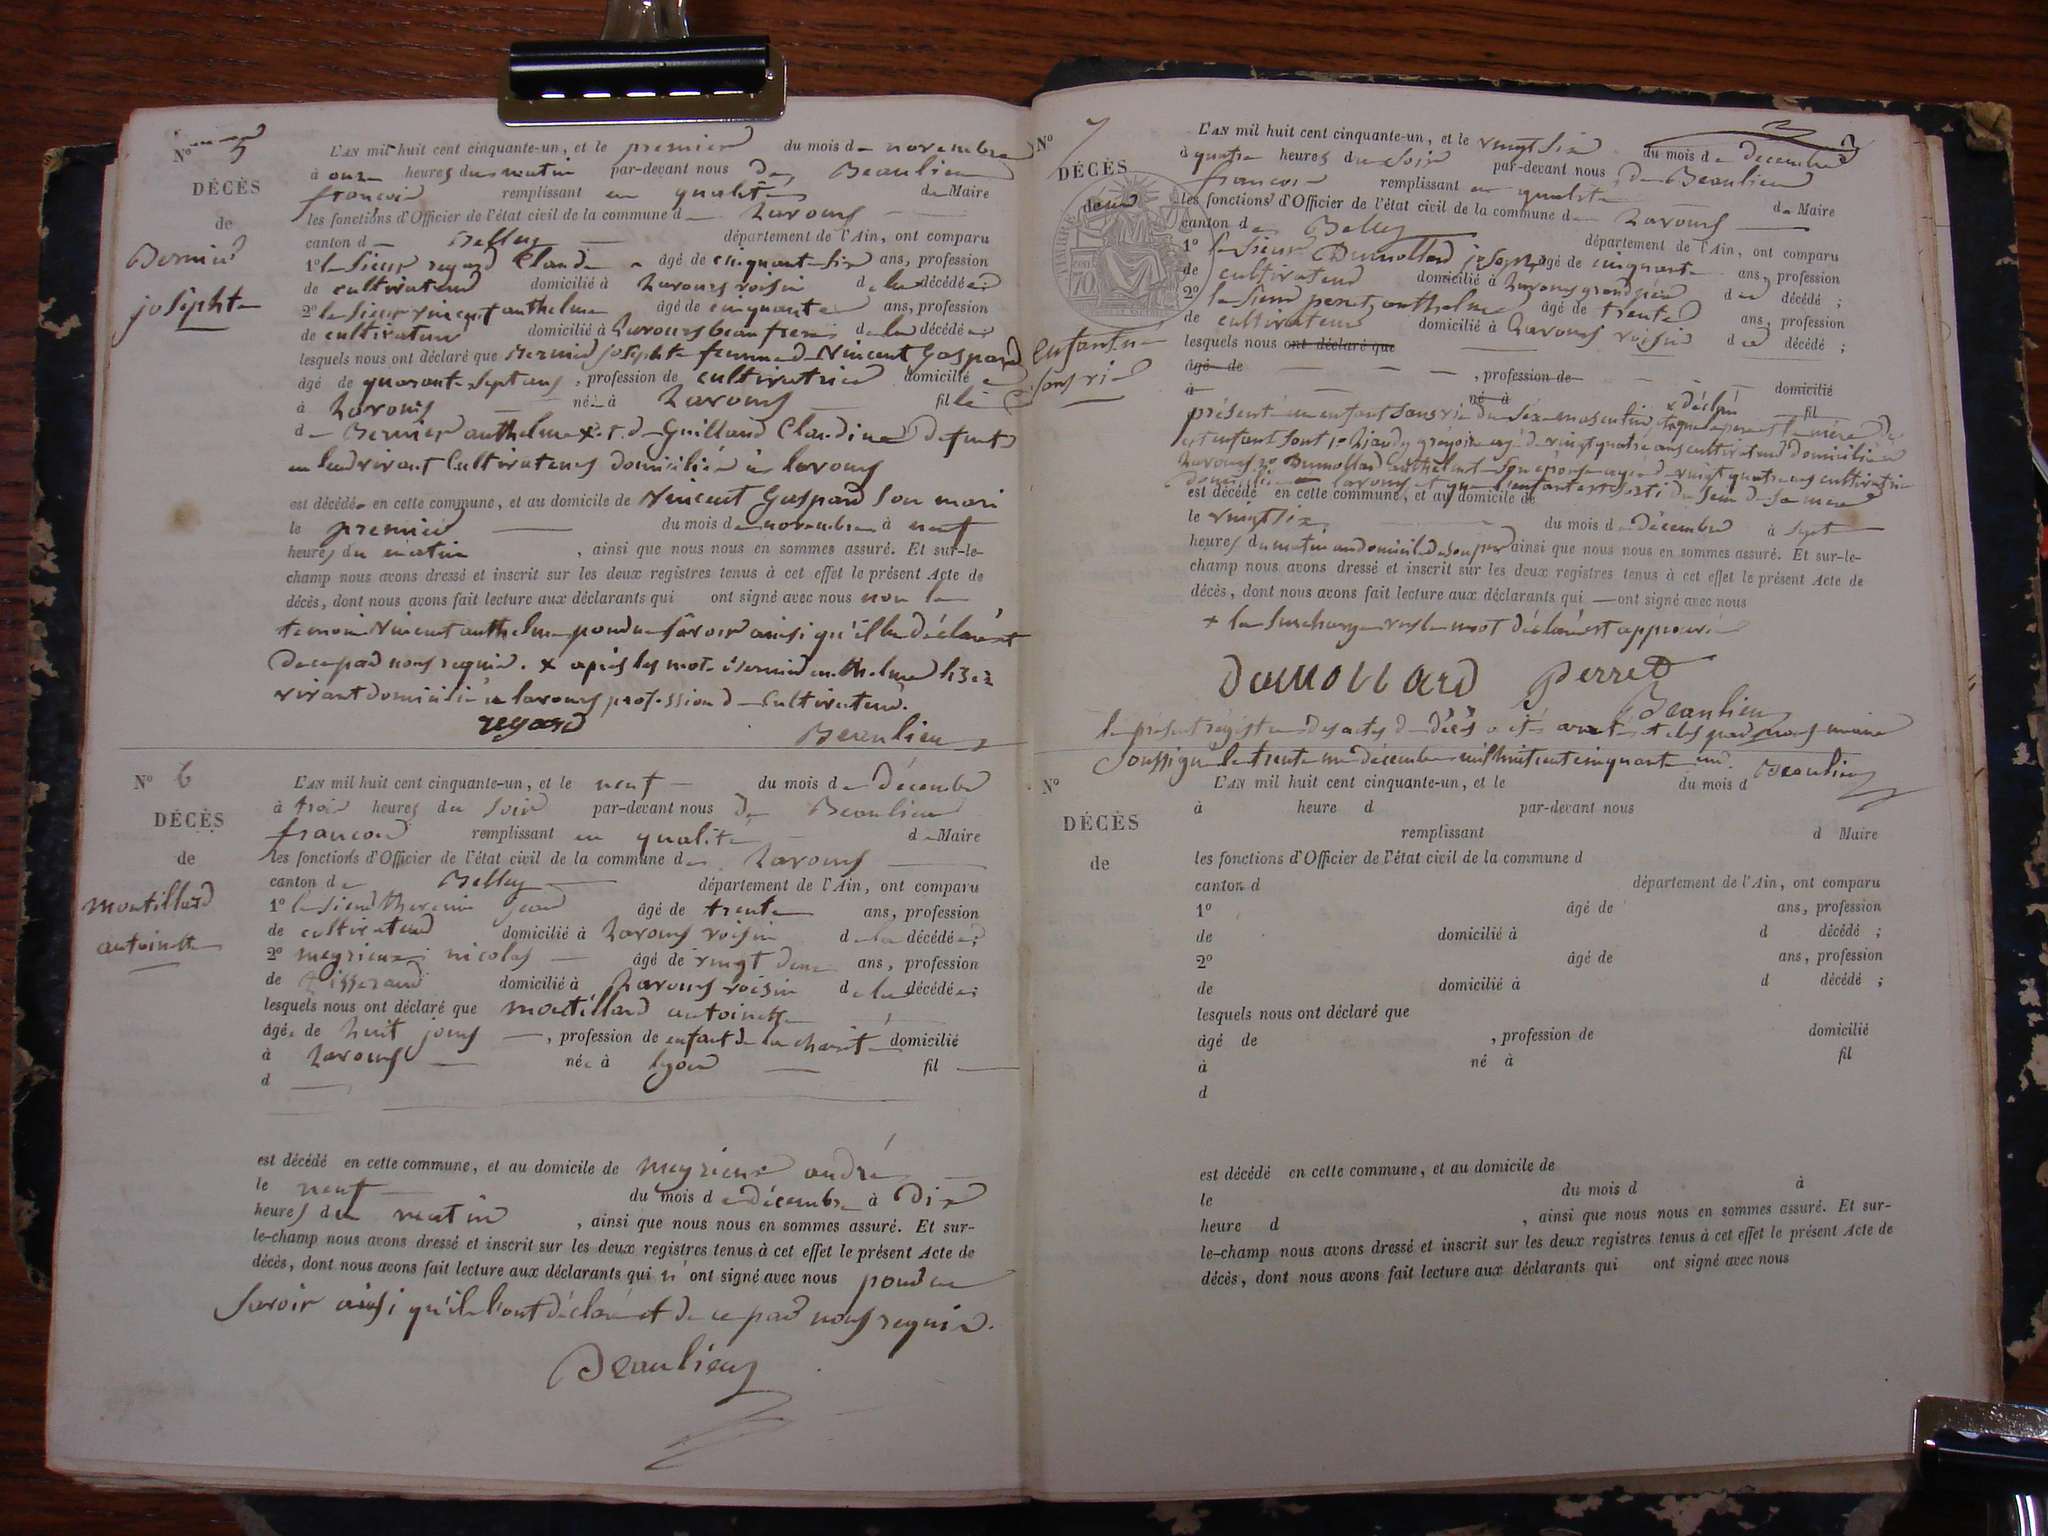 No 5
DÉCÈS
de
Bernier
josephte
L'AN mil huit cent cinquante-un, et le premier du mois de novembre
à onze heures du matin par-devant nous de Beaulieu
françois remplissant en qualité de Maire
les fonctions d'Officier de l'état civil de la commune de Lavours
canton de Belley département de l'Ain, ont comparu
1o le sieur regard Claude âgé de cinquante six ans, profession
de cultivateur domicilié à Lavours voisin de la décédée;
2o le sieur vincent anthelme âgé de cinquante ans, profession
de cultivateur domicilié à Lavours beau frere de la décédée;
lesquels nous ont déclaré que Bernier josephte femme de Vincent Gaspard
âgé de quarante sept ans, profession de cultivatrice domicilié
à Lavours née à Lavours fille
de Bernier anthelme x et de Guilland Claudine
cultivateurs domiciliés à lavours
est décédée en cette commune, et au domicile de Vincent Gaspard son mari
le premier du mois de novembre à neuf
heures du matin, ainsi que nous nous en sommes assuré. Et sur-le-
champ nous avons dressé et inscrit sur les deux registres tenus à cet effet le présent Acte de
décès, dont nous avons fait lecture aux déclarants qui ont signé avec nous non le
temoin Vincent anthelme pour ne savoir ainsi qu'il l'a déclaré et
de ce par nous requis. x après les mots Bernier anthelme lisez
vivant domicilié à lavours profession de cultivateur.
regard Beaulieu
No 6
DÉCÈS
de
montillard
antoinette
L'AN mil huit cent cinquante-un, et le neuf du mois de Décembre
à trois heures du soir par-devant nous de Beaulieu
françois remplissant en qualité de Maire
les fonctions d'Officier de l'état civil de la commune de Lavours
canton de Belley département de l'Ain, ont comparu
1o le sieur jean âgé de trente ans, profession
de cultivateur domicilié à Lavours voisin de la décédée;
2o meyrieux nicolas âgé de vingt deux ans, profession
de tisserand domicilié à Lavours voisin de la décédée;
lesquels nous ont déclaré que montillard antoinette
âgée de huit jours, profession de enfant de la charité domicilié
à Lavours née à lyon fil
d
est décédé en cette commune, et au domicile de meyrieux andré
le neuf du mois de décembre à Dix
heures du matin, ainsi que nous nous en sommes assuré. Et sur-
le-champ nous avons dressé et inscrit sur les deux registres tenus à cet effet le présent Acte de
décès, dont nous avons fait lecture aux déclarants qui n'ont signé avec nous pour ne
savoir ainsi qu'ils l'ont déclaré et de ce par nous requis.
Beaulieu
No 7
DÉCÈS
de un
enfant né
sans vie
TIMBRE
70
L'AN mil huit cent cinquante-un, et le vingt six du mois de decembre
à quatre heures du soir par-devant nous de Beaulieu
francois remplissant en qualité de Maire
les fonctions d'Officier de l'état civil de la commune de Lavours
canton de Belley département de l'Ain, ont comparu
1o le sieur Dumollard joseph âgé de cinquante ans, profession
de cultivateur domicilié à Lavours grand père du décédé;
2o le sieur perret anthelme âgé de trente ans, profession
de cultivateur domicilié à Lavours voisin du décédé;
lesquels nous ont déclaré que
âgé de, profession de domicilié
à né à fil
présenté un enfant sans vie du sexe masculin, x déclaré que le pere et la mère de
cet enfant sont 1o grégoire agé de vingt quatre ans cultivateur domicilié à
Lavours 2o Dumollard son épouse agée de vingt quatre ans cultivatrice
domiciliée à lavours et que l'enfant est sorti du sein de sa mere
est décédé en cette commune, et au domicile de
le vingt six du mois de décembre à sept
heures du matin au domicile de son pere ainsi que nous nous en sommes assuré. Et sur-le-
champ nous avons dressé et inscrit sur les deux registres tenus à cet effet le présent Acte de
décès, dont nous avons fait lecture aux déclarants qui ont signé avec nous
+ la surcharge le mot déclaré est approuvée
Dumollard Perret
Beaulieu
le présent régistre des actes de Décès a été arrêté et clos par nous maire
soussigné le trente un décembre mil huit cent cinquante un. Beaulieu
No
DÉCÈS
de
L'AN mil huit cent cinquante-un, et le du mois d
à heure d par-devant nous
remplissant d Maire
les fonctions d'Officier de l'état civil de la commune d
canton d département de l'Ain, ont comparu
1o âgé de ans, profession
de domicilié à d décédé;
2o âgé de ans, profession
de domicilié à d décédé;
lesquels nous ont déclaré que
âgé de, profession de domicilié
à né à fil
d
est décédé en cette commune, et au domicile de
le du mois d à
heure d, ainsi que nous nous en sommes assuré. Et sur-
le-champ nous avons dressé et inscrit sur les deux registres tenus à cet effet le présent Acte de
décès, dont nous avons fait lecture aux déclarants qui ont signé avec nous